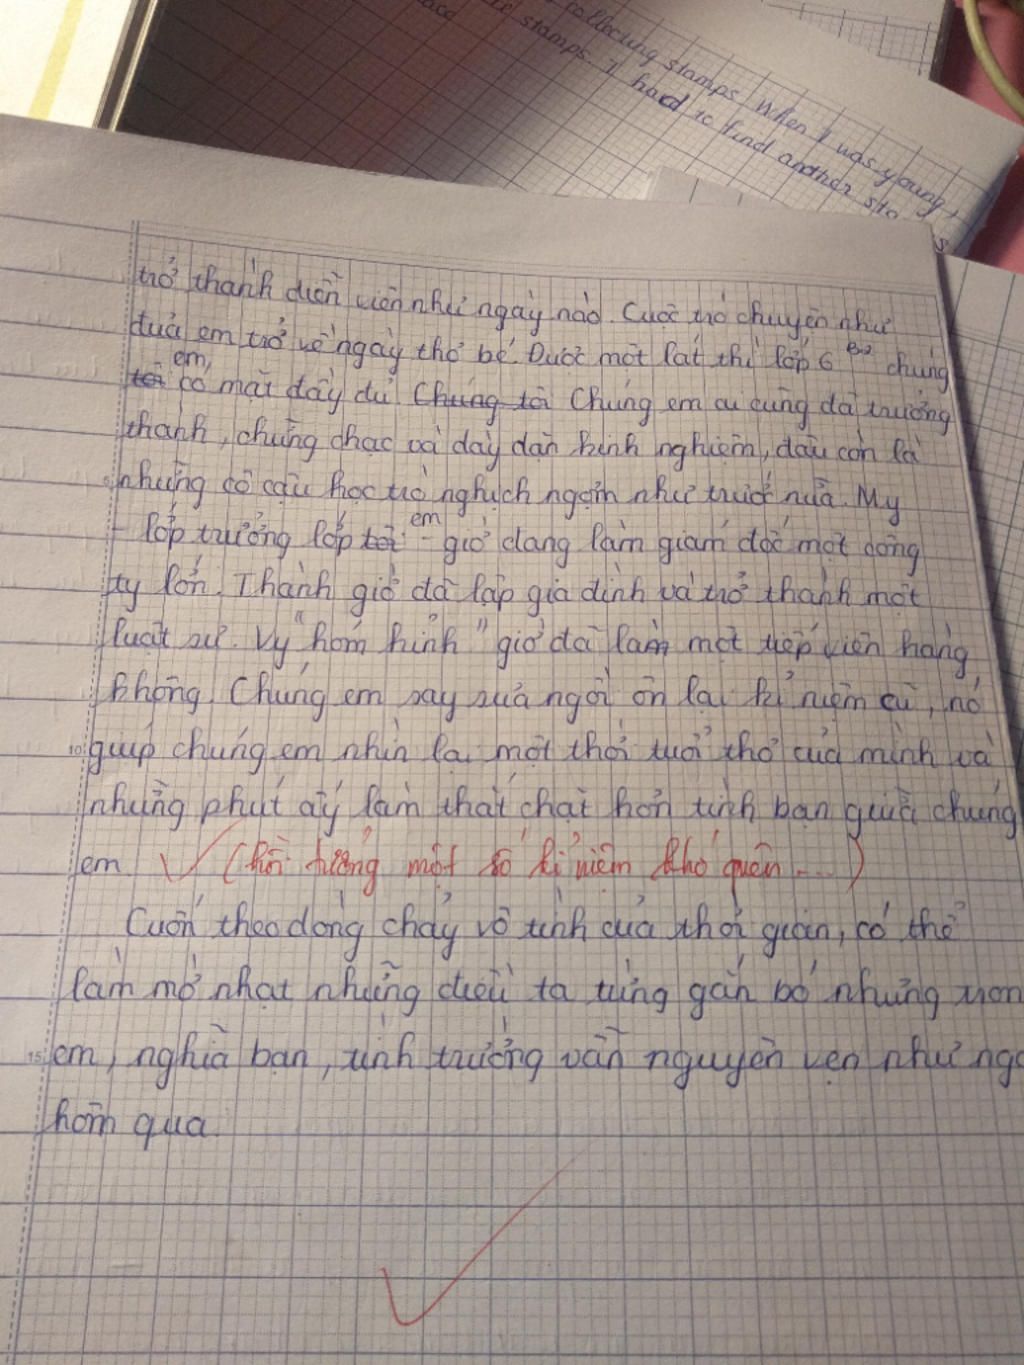 collecting stamps. When I was young,
stamps. I hard to find another sta
trở thành diễn viên như ngày nào. Cuộc trò chuyện như
đưa em trở về ngày thơ bé. Được một lát thì lớp 6 chúng
tôi em, có mặt đầy đủ. Chúng tôi Chúng em ai cũng đã trưởng
thành, chững chạc và dày dặn kinh nghiệm, đâu còn là
những cô cậu học trò nghịch ngợm như trước nữa. My
- lớp trưởng lớp tôi em - giờ đang làm giám đốc một công
ty lớn. Thành giờ đã lập gia đình và trở thành một
luật sư. Vy "hóm hỉnh" giờ đã làm một tiếp viên hàng
không. Chúng em say sưa ngồi ôn lại kỉ niệm cũ, nó
10 giúp chúng em nhìn lại một thời tuổi thơ của mình và
những phút ấy làm thắt chặt hơn tình bạn giữa chúng
em. (hồi tưởng một số kỉ niệm khó quên ...)
Cuốn theo dòng chảy vô tình của thời gian, có thể
làm mờ nhạt những điều ta từng gắn bó nhưng
15 em, nghĩa bạn, tình trường vẫn nguyên vẹn như
hôm qua.